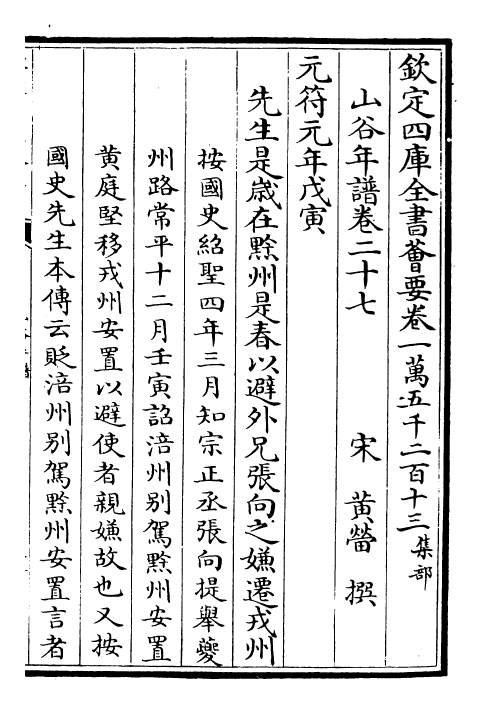 欽定四庫全書薈要卷一萬五千二百十三集部
山谷年譜卷二十七　宋　黃㽦　撰
元符元年戊寅
先生是歲在黔州是春以避外兄張向之嫌遷戎州
按國史紹聖四年三月知宗正丞張向提舉夔
州路常平十二月壬寅詔涪州别駕黔州安置
黄庭堅移戎州安置以避使者親嫌故也又按
國史先生本傳云貶涪州别駕黔州安置言者